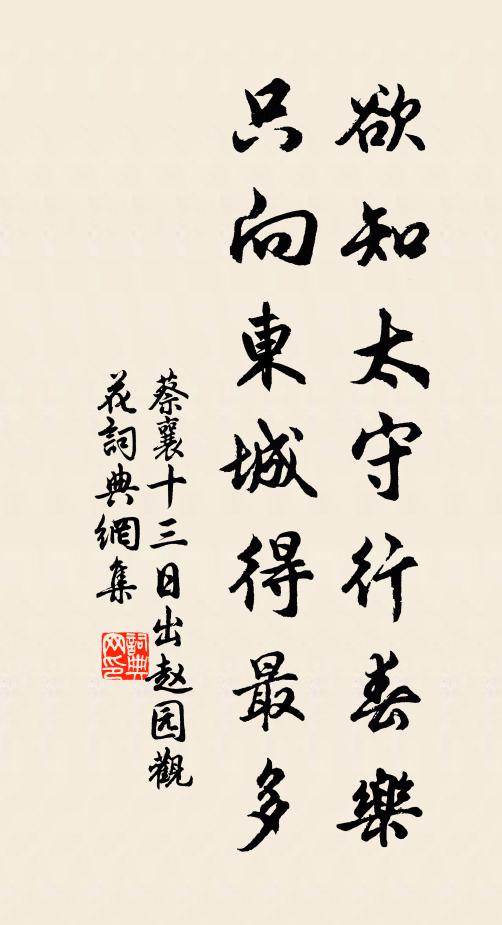 欲知太守行春樂
只向東城得最多
蔡襄十三日出赵园觀
花詞典網集
詞典网印